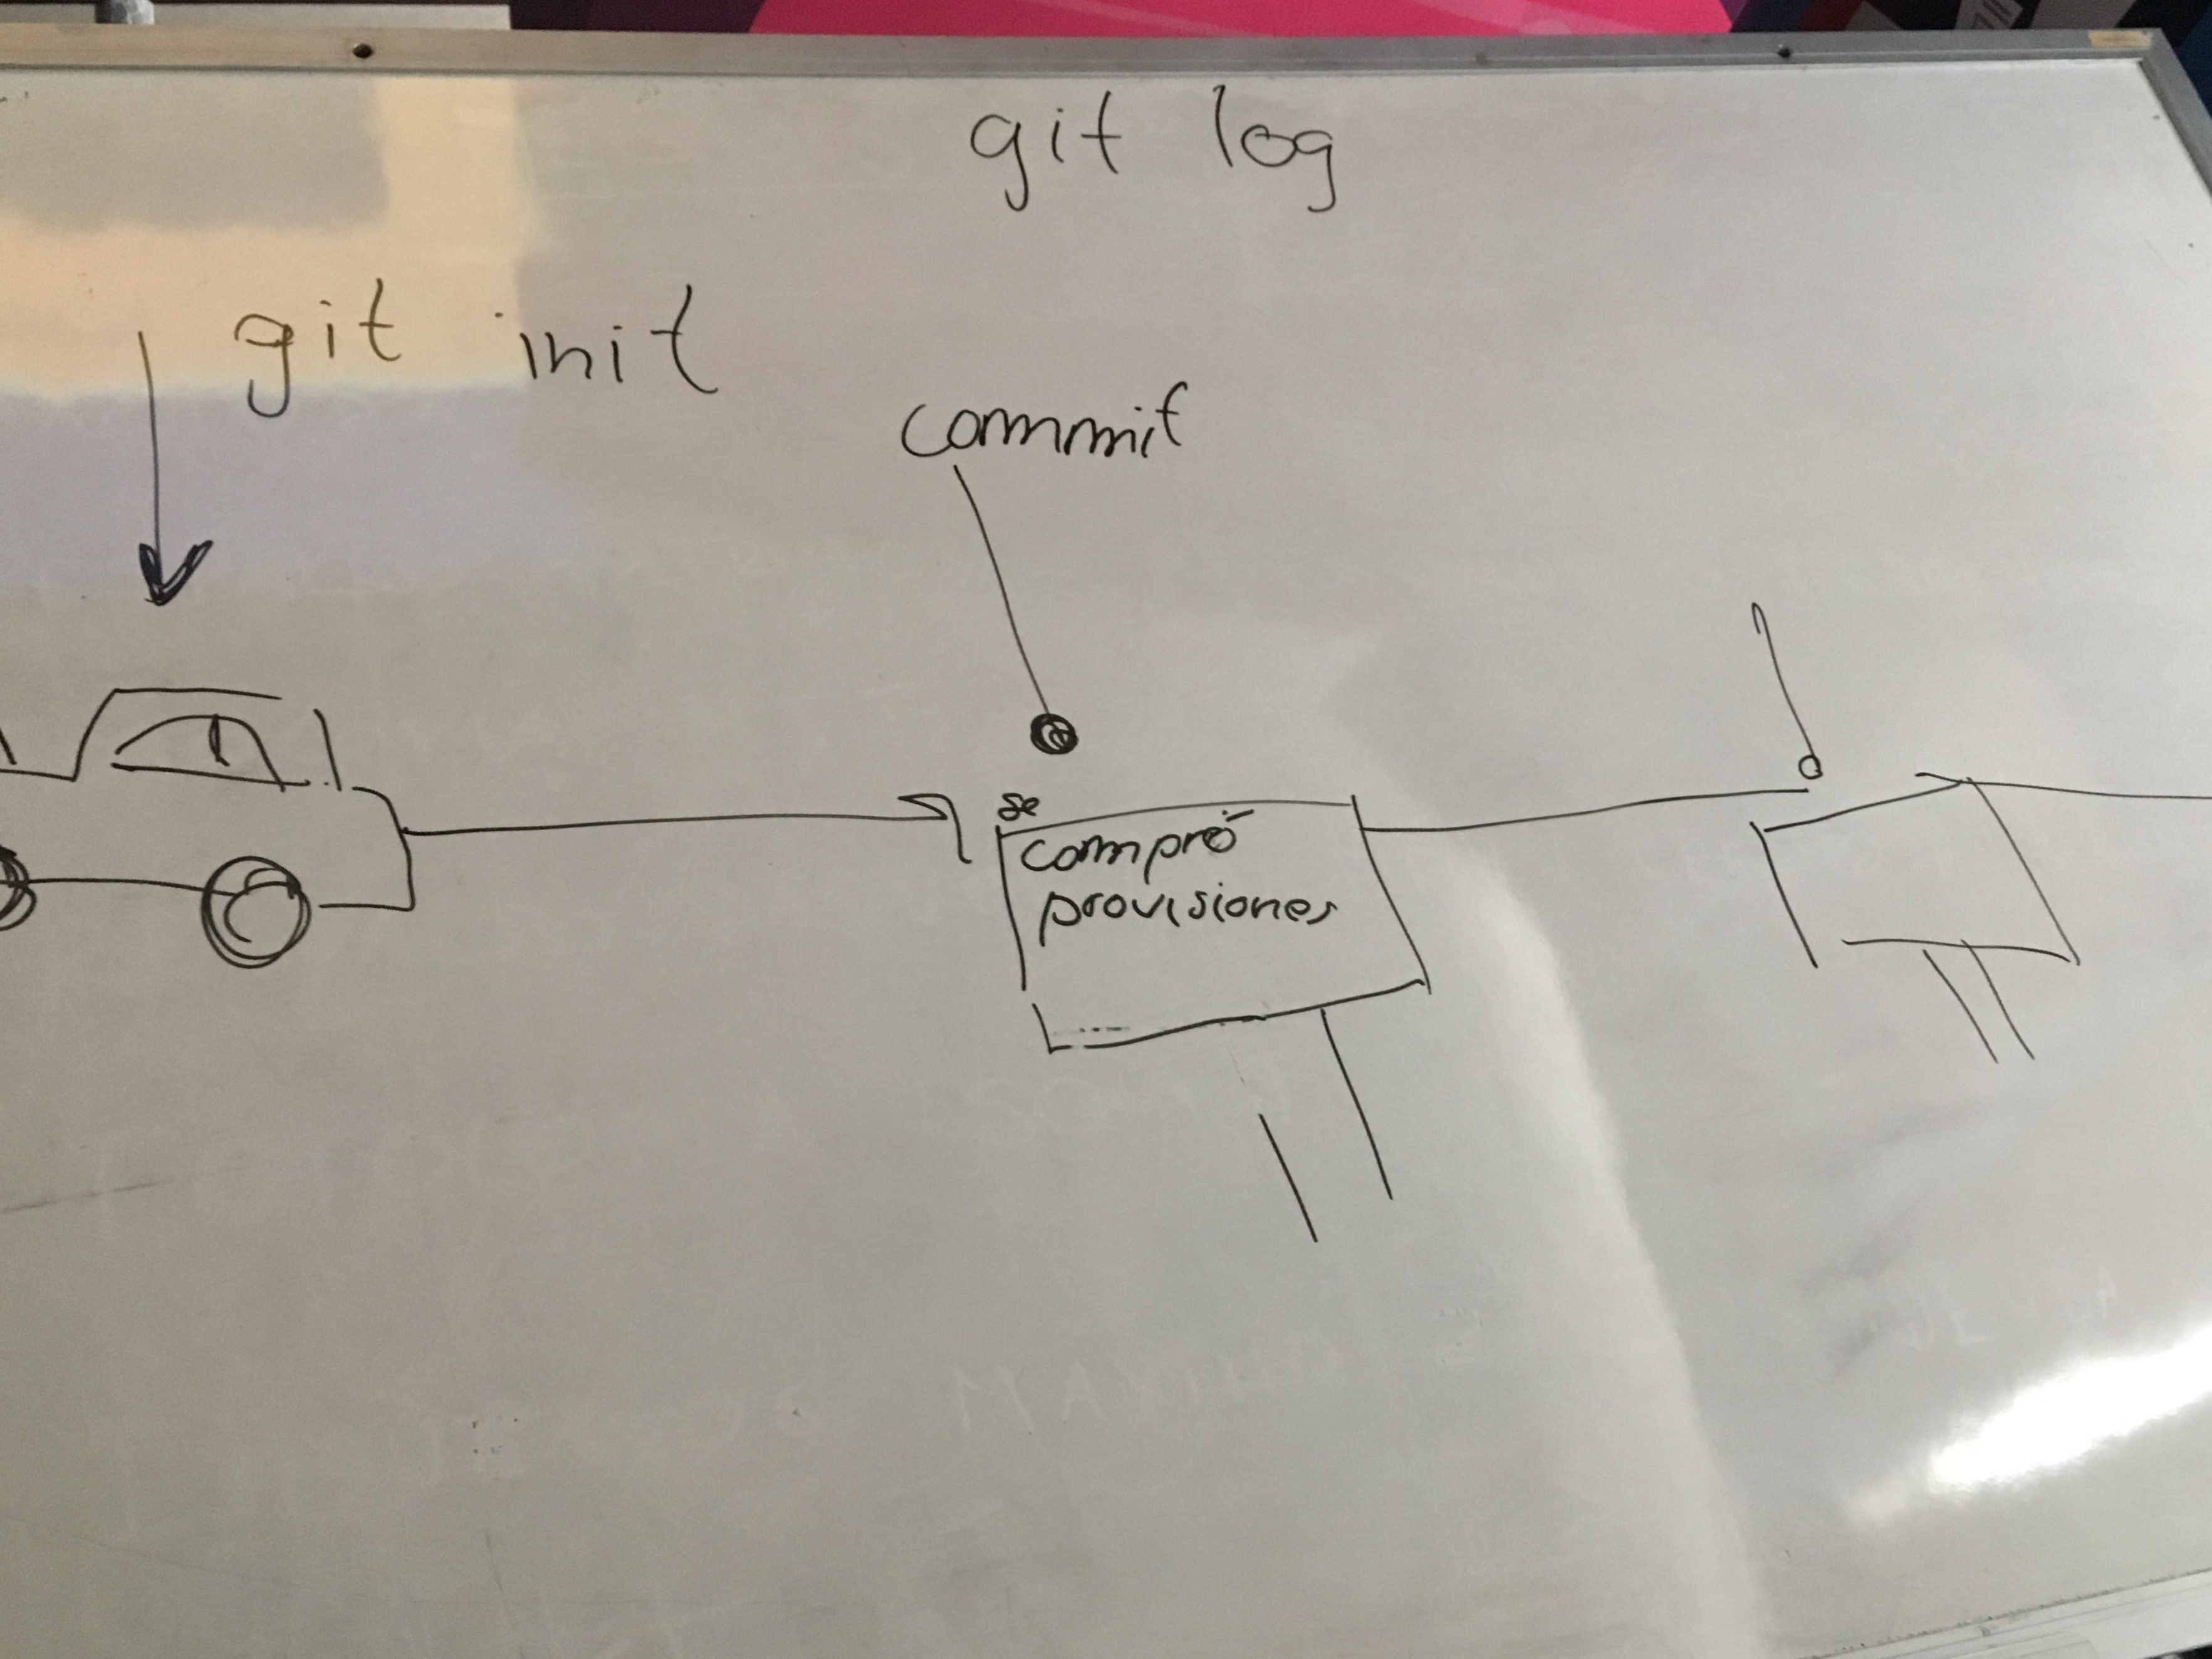 git log
git init
commit
se
compró
provisiones